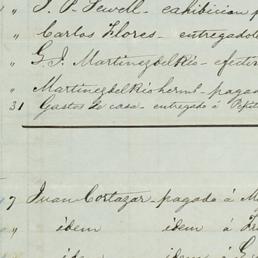 " J. P. Sewell - exhibicion
" Carlos Flores - entregado
" G. J. Martinez del Rio - efectivo
" Martinez del Rio herms - pagado
31 Gastos de casa - entregado á Pepita
7 Juan Cortazar - pagado á
" idem idem á
idem idem á